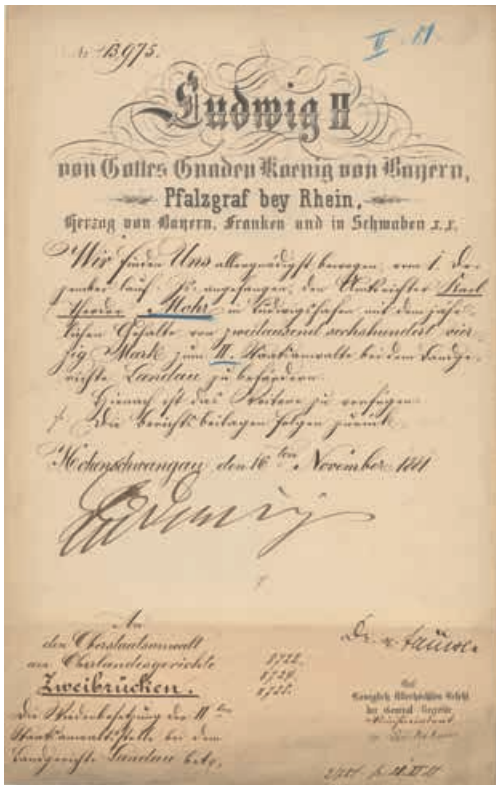 No 13,975.
II. 11
Ludwig II
von Gottes Gnaden Koenig von Bayern,
Pfalzgraf bey Rhein,
Herzog von Bayern, Franken und in Schwaben x.x.
Wir finden Uns allergnädigst bewogen, vom 1. De-
zember lauf. Js. angefangen, den Amtsrichter Karl
Theodor Mohr in Ludwigshafen mit dem jähr-
lichen Gehalte von zweitausend sechshundert vier-
zig Mark zum II. Staatsanwalte bei dem Landge-
richte Landau zu befördern.
Hienach ist das Weitere zu verfügen.
Die Berichtsbeilagen folgen zurück.
Hohenschwangau, den 16ten November 1881
Ludwig
An
den Oberstaatsanwalt
am Oberlandesgerichte
Zweibrücken.
Die Wiederbesetzung der IIten
Staatsanwaltsstelle bei dem
Landgerichte Landau betr.
1722.
1724.
1725.
Dr. v. Fäustle
Auf
Königlich Allerhöchsten Befehl
der General Secretär